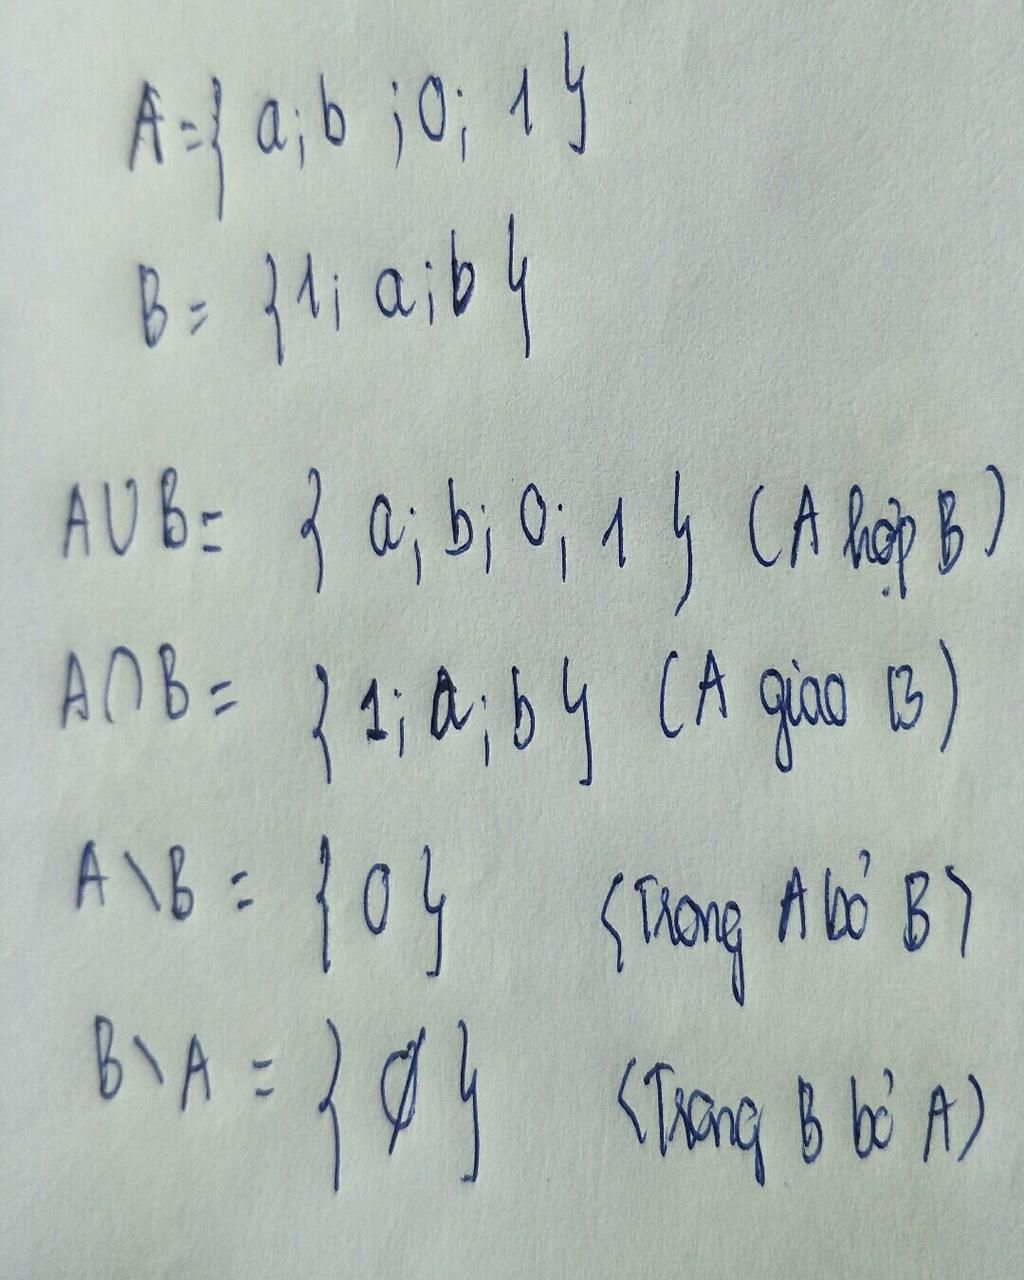 A = { a; b ; 0; 1 }
B = { 1; a; b }
A ∪ B = { a; b; 0; 1 } (A hợp B)
A ∩ B = { 1; a; b } (A giao B)
A \ B = { 0 } (Trong A bỏ B)
B \ A = { ∅ } (Trong B bỏ A)